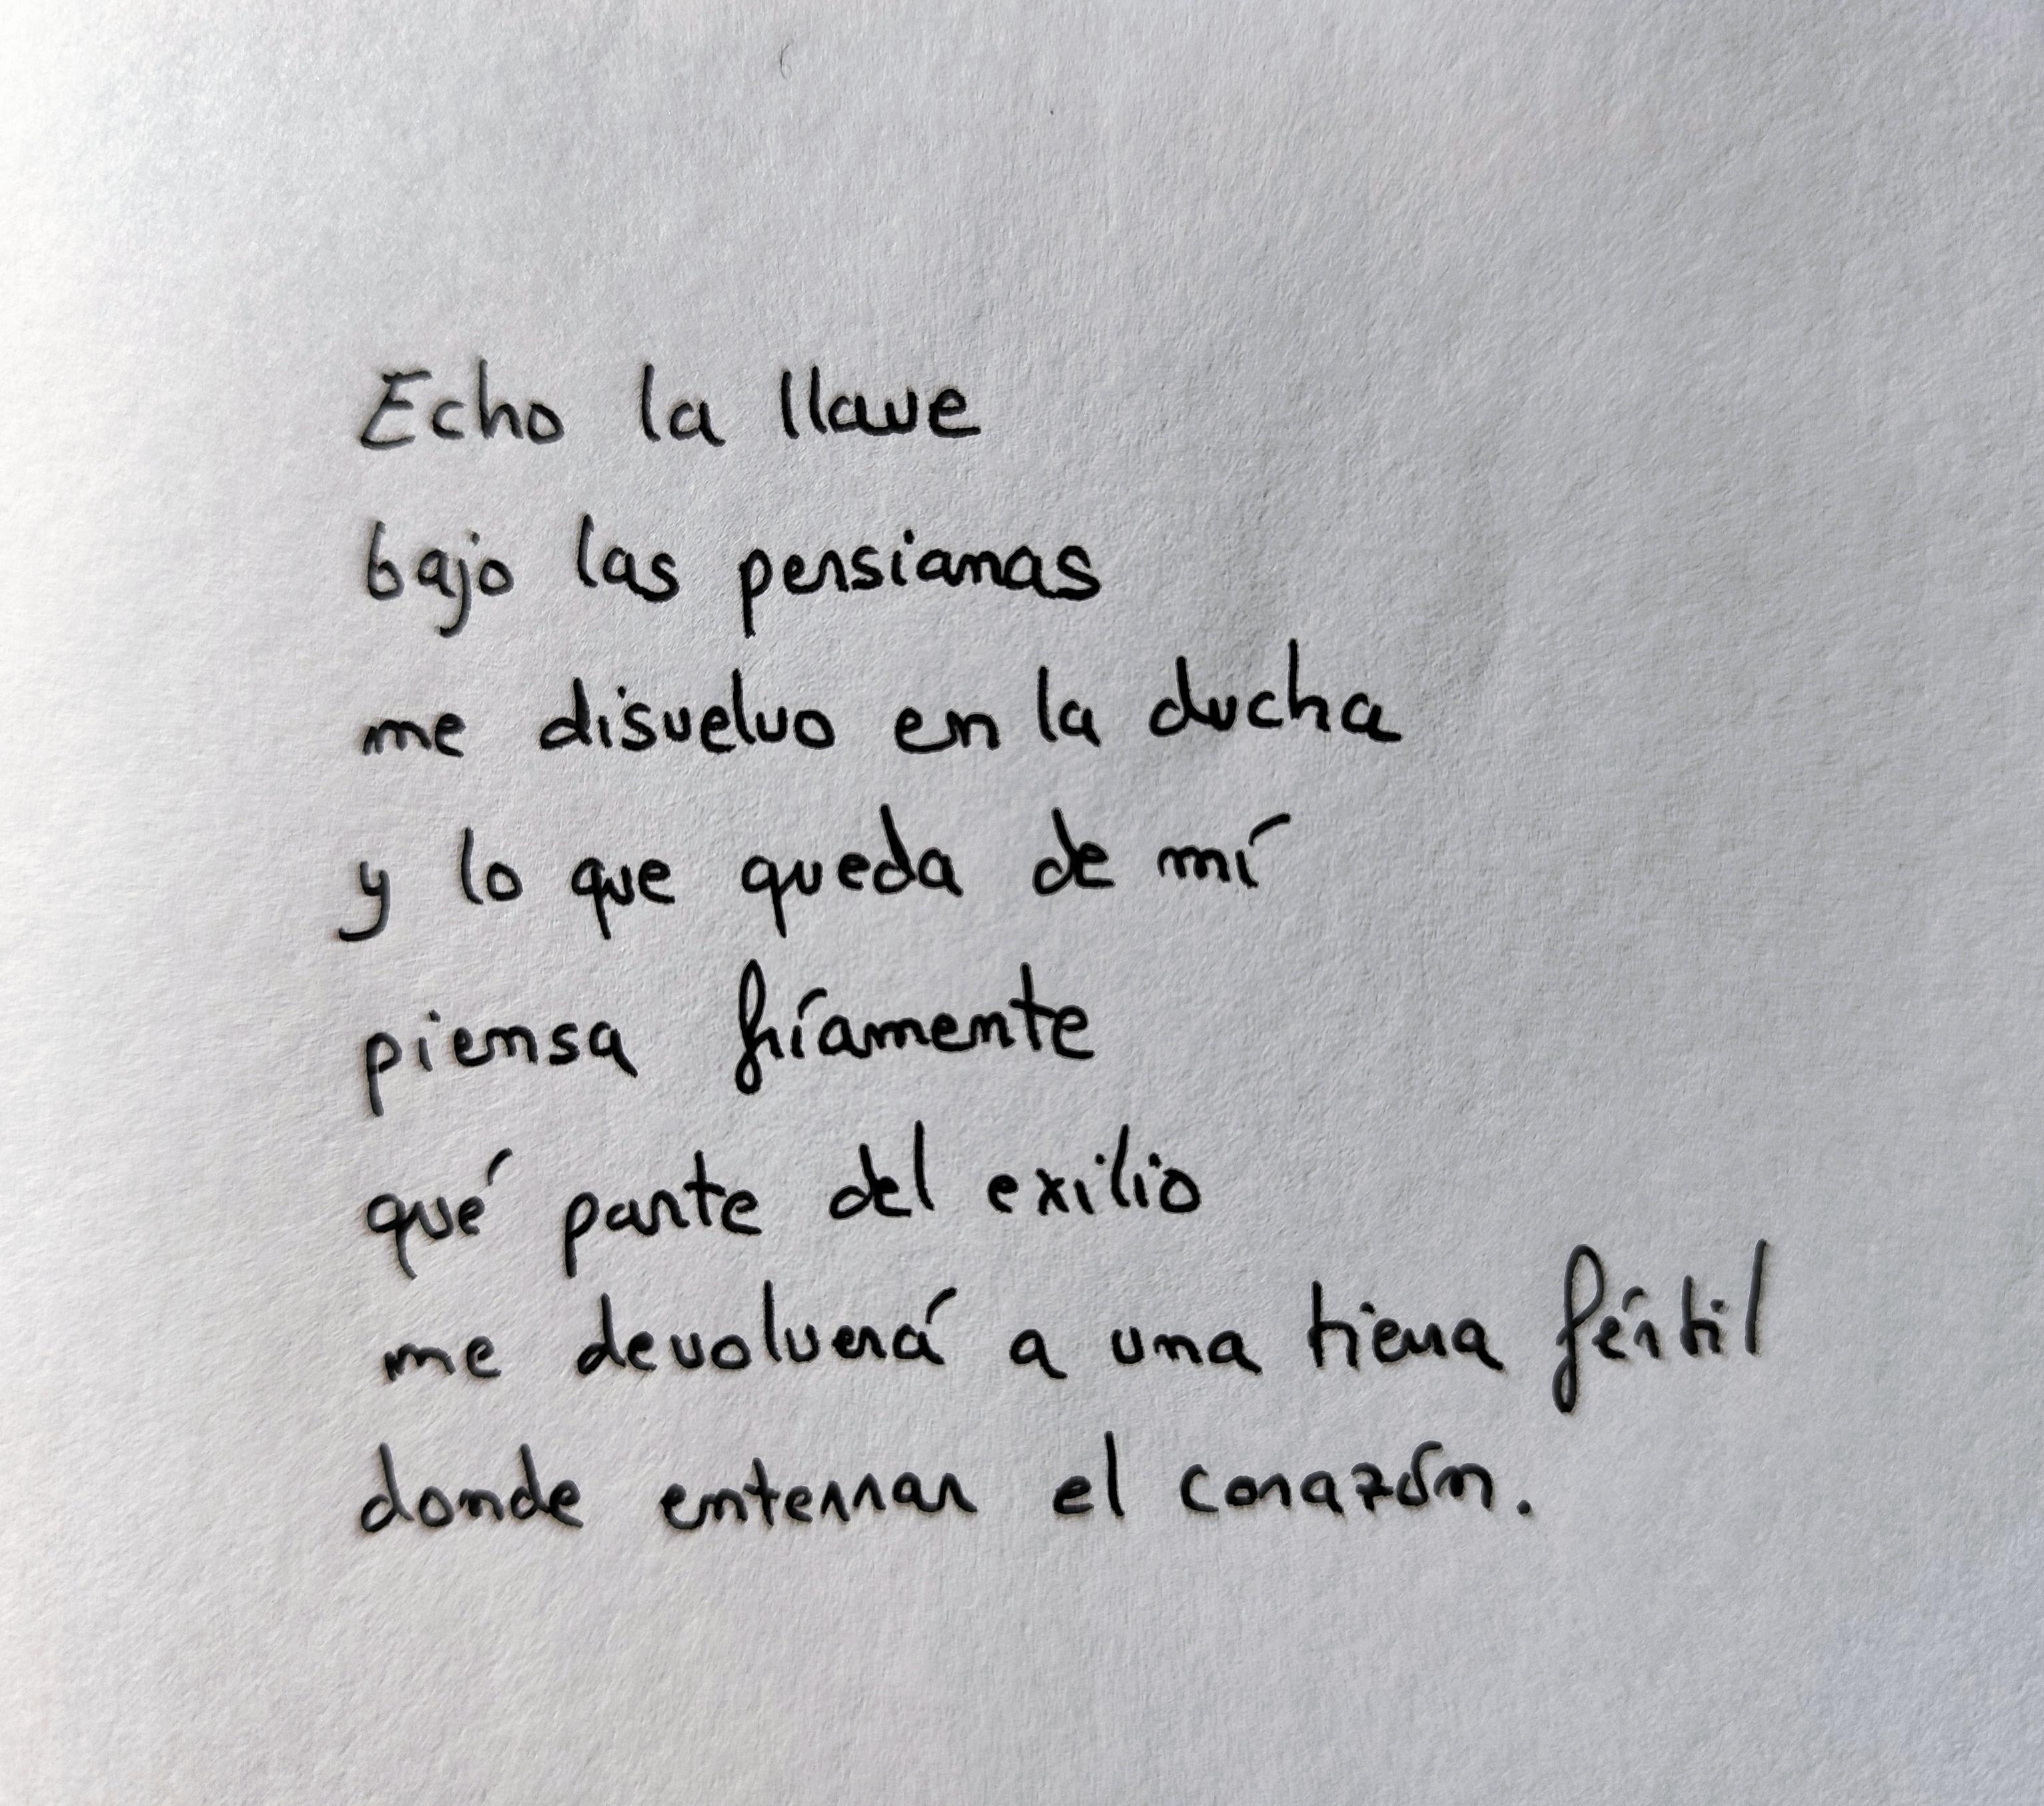 Echo la llave
bajo las persianas
me disuelvo en la ducha
y lo que queda de mí
piensa fríamente
qué parte del exilio
me devolverá a una tierra fértil
donde enterrar el corazón.